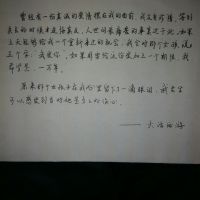 曾经有一份真诚的爱情摆在我的面前,我没有珍惜,等到
失去的时候才追悔莫及,人世间最痛苦的事莫过于此,如果
上天能够给我一个重新来过的机会,我会对那个女孩说
三个字:我爱你,如果非要给这份爱加上一个期限,我
希望是,一万年。
原来那个女孩子在我心里留下一滴眼泪,我完全
可以感受到当时她是多么的伤心
——大话西游